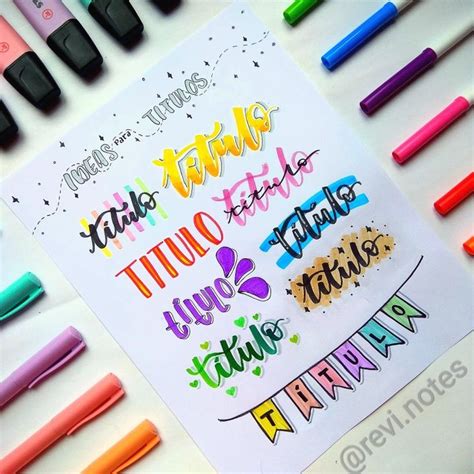 IDEAS para TITULOS
titulo
titulo
titulo
TITULO
titulo
titulo
titulo
titulo
TÍTULO
@revi.notes